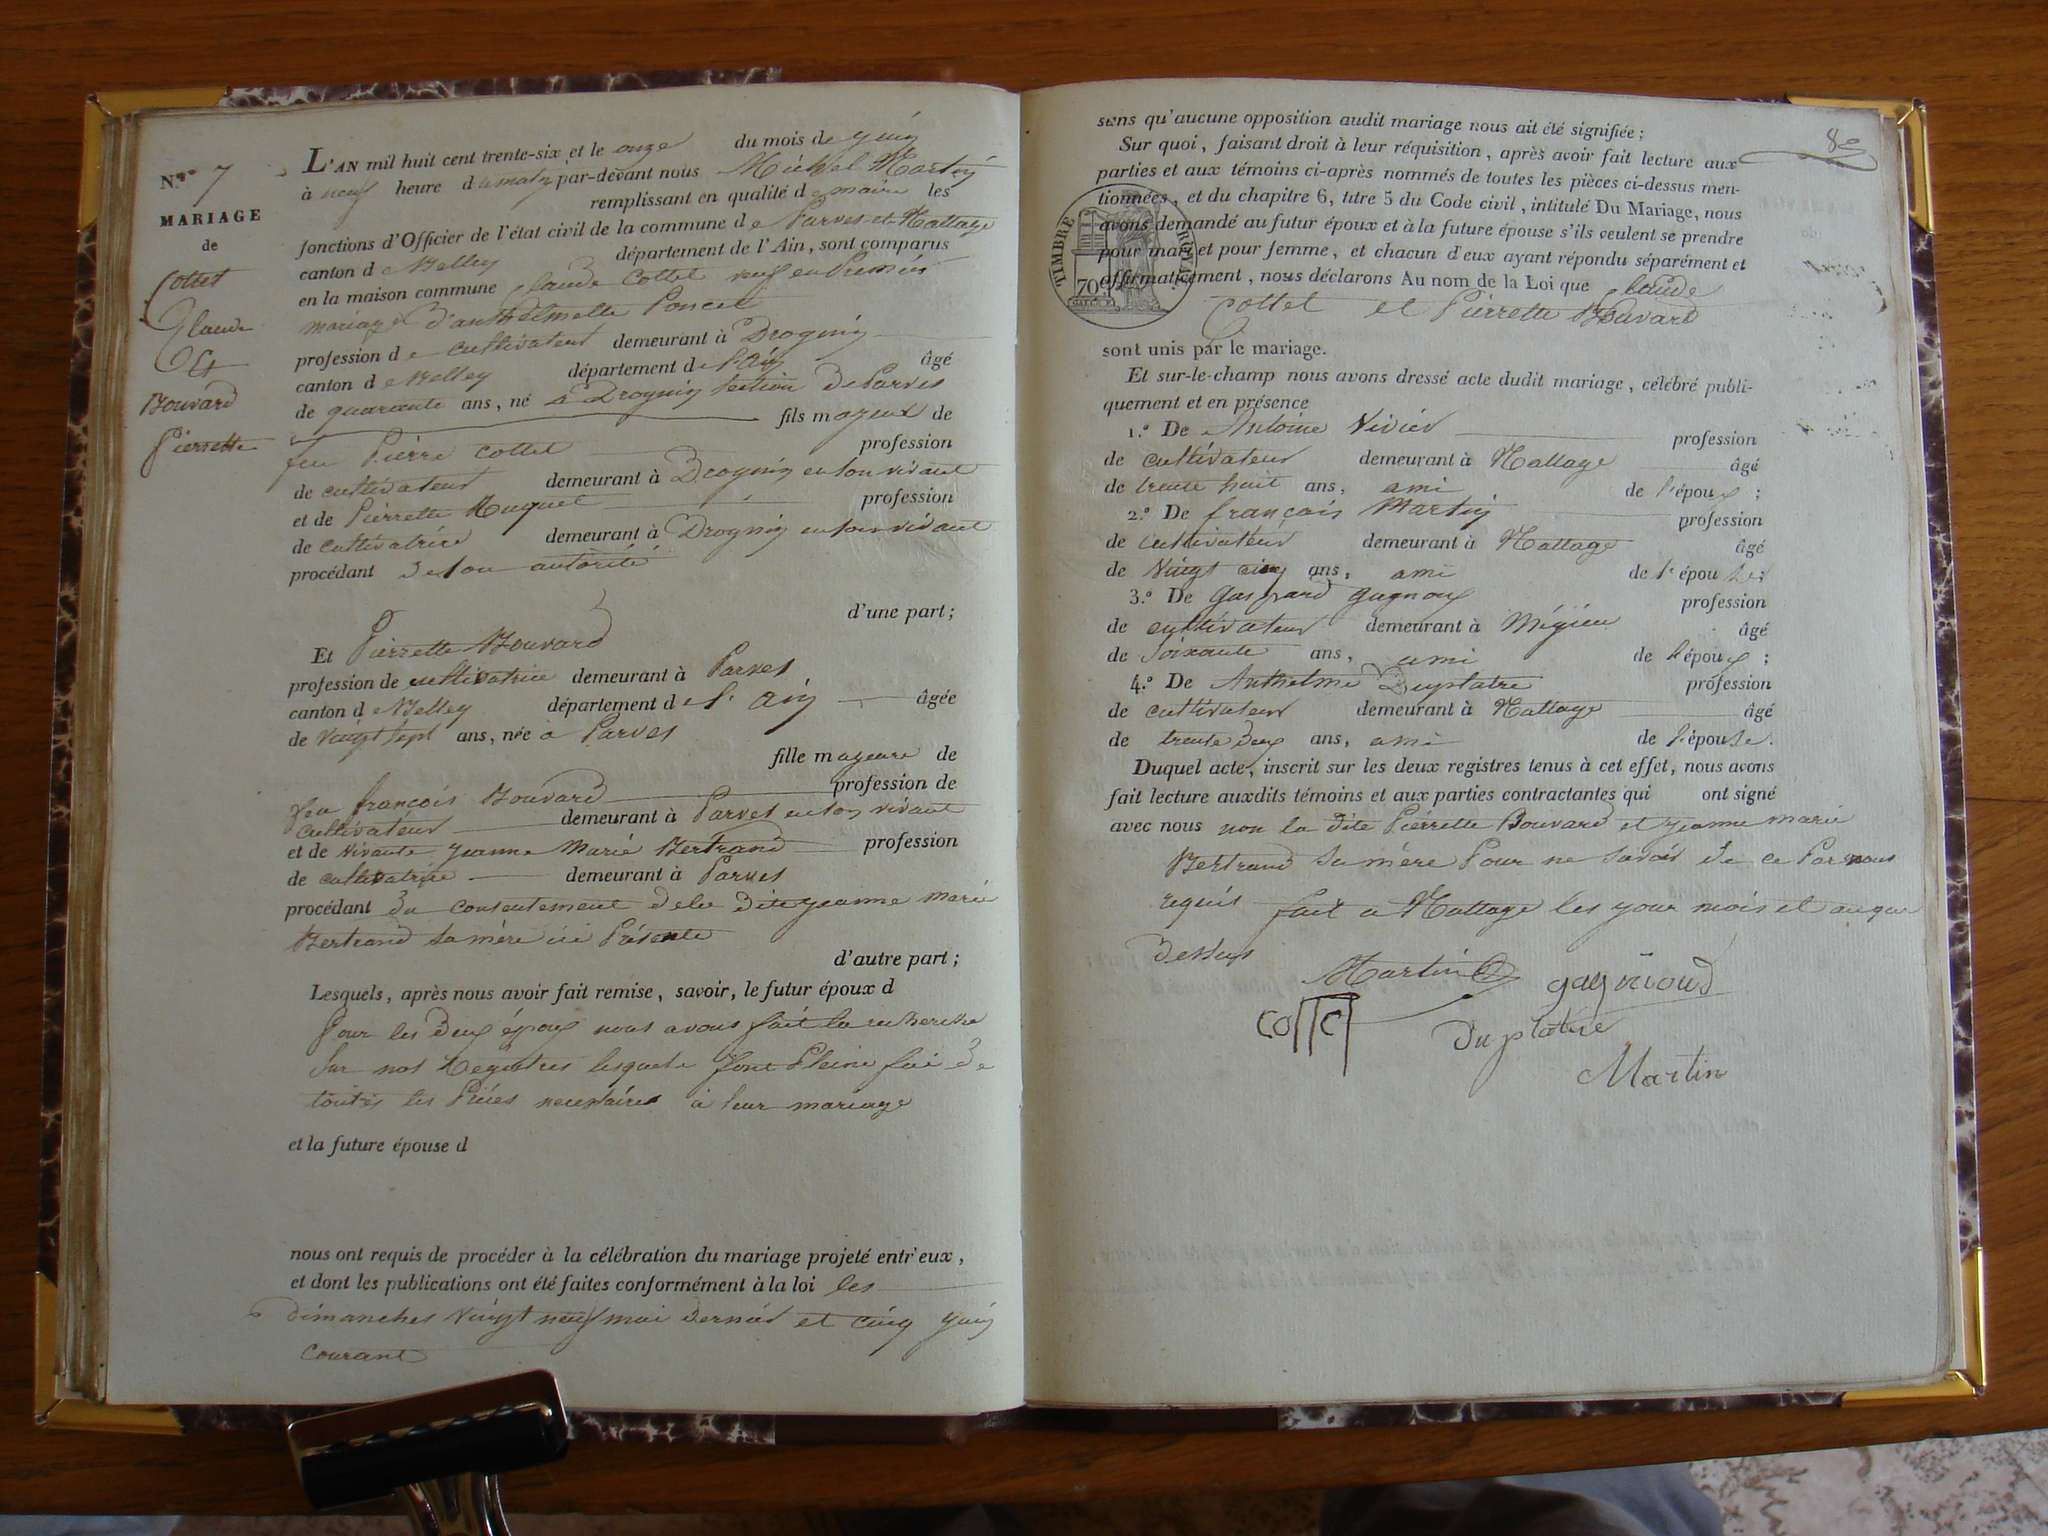 N.º 7
MARIAGE
de
Cottet
Claude
Et
Bouvard
Pierrette
L'AN mil huit cent trente-six et le onze du mois de juin
à neuf heure du matin par-devant nous Michel Martin
remplissant en qualité de maire les
fonctions d'Officier de l'état civil de la commune de Parves et Nattage
canton de Belley département de l'Ain, sont comparus
en la maison commune Claude Cottet veuf en Premier
mariage d'anthelmette Poncet
profession de cultivateur demeurant à Drognin
canton de Belley département de l'Ain âgé
de quarante ans, né à Drognin Section De Parves
fils majeur de
feu Pierre Cottet profession
de cultivateur demeurant à Drognin en son vivant
et de Pierrette Huguet profession
de cultivatrice demeurant à Drognin en son vivant
procédant de son autorité
d'une part;
Et Pierrette Bouvard
profession de cultivatrice demeurant à Parves
canton de Belley département de l'Ain âgée
de vingt sept ans, née à Parves
fille majeure de
feu françois Bouvard profession de
cultivateur demeurant à Parves en son vivant
et de vivante jeanne Marie Bertrand profession
de cultivatrice demeurant à Parves
procédant du consentement de la dite jeanne marie
Bertrand sa mère ici Présente
d'autre part;
Lesquels, après nous avoir fait remise, savoir, le futur époux d
Pour les deux époux nous avons fait la recherche
Sur nos Registres lesquels font Pleine foi de
toutes les Pièces necessaires à leur mariage
et la future épouse d
nous ont requis de procéder à la célébration du mariage projeté entr'eux,
et dont les publications ont été faites conformément à la loi les
dimanches vingt neuf mai dernier et cinq juin
courant
8
sens qu'aucune opposition audit mariage nous ait été signifiée;
Sur quoi, faisant droit à leur réquisition, après avoir fait lecture aux
parties et aux témoins ci-après nommés de toutes les pièces ci-dessus men-
tionnées, et du chapitre 6, titre 5 du Code civil, intitulé Du Mariage, nous
avons demandé au futur époux et à la future épouse s'ils veulent se prendre
pour mari et pour femme, et chacun d'eux ayant répondu séparément et
affirmativement, nous déclarons Au nom de la Loi que Claude
Cottet et Pierrette Bouvard
TIMBRE ROYAL
70
sont unis par le mariage.
Et sur-le-champ nous avons dressé acte dudit mariage, célébré publi-
quement et en présence
1.º De Antoine Vivier profession
de cultivateur demeurant à Nattage âgé
de trente huit ans, ami de l'époux;
2.º De françois Martin profession
de cultivateur demeurant à Nattage âgé
de vingt cinq ans, ami de l'épouse
3.º De Gaspard Gagnoux profession
de cultivateur demeurant à Mégieu âgé
de soixante ans, ami de l'époux;
4.º De Anthelme Duplatre profession
de cultivateur demeurant à Nattage âgé
de trente deux ans, ami de l'épouse.
Duquel acte, inscrit sur les deux registres tenus à cet effet, nous avons
fait lecture auxdits témoins et aux parties contractantes qui ont signé
avec nous non la dite Pierrette Bouvard et jeanne marie
Bertrand sa mère Pour ne savoir de ce Par nous
requis fait à Nattage les jour mois et an que
dessus
Martin gagnioud
Cottet
Duplatre
Martin